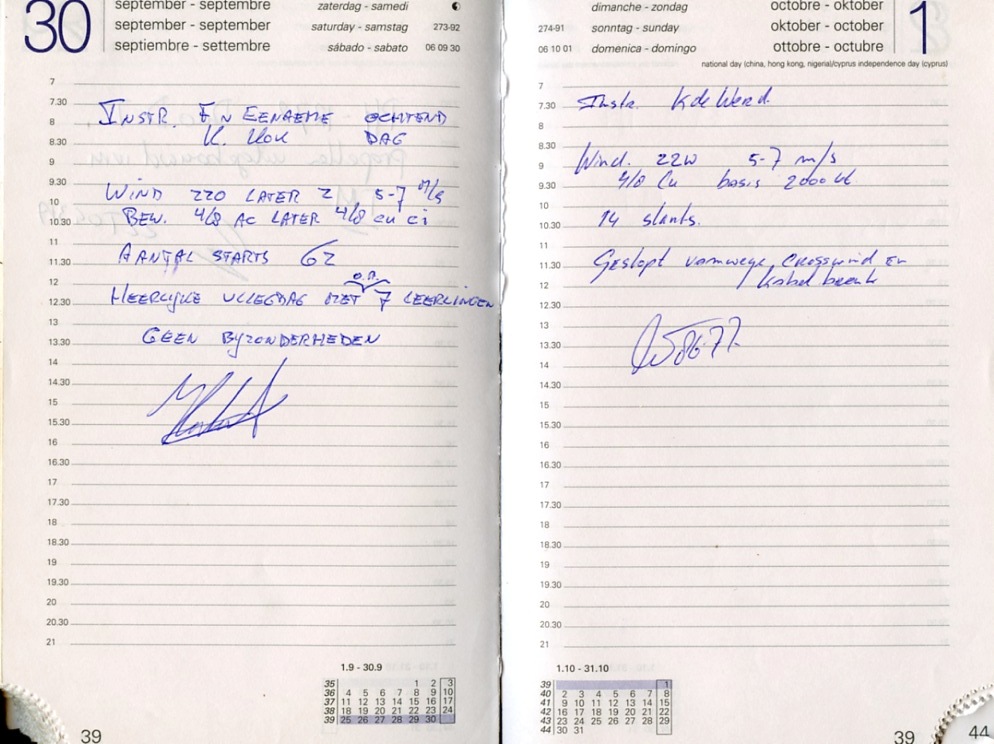 30
september - septembre
september - september
septiembre - settembre
zaterdag - samedi
saturday - samstag 273-92
sábado - sabato 06 09 30
7
7.30
8
8.30
9
9.30
10
10.30
11
11.30
12
12.30
13
13.30
14
14.30
15
15.30
16
16.30
17
17.30
18
18.30
19
19.30
20
20.30
21
INSTR. EENAEME OCHTEND
K. KOK DAG
WIND 220 LATER Z 5-7 M/S
BEW. 4/8 AC LATER 4/8 cu ci
AANTAL STARTS 62
HEERLIJKE VLIEGDAG MET 7 LEERLINGEN
GEEN BIJZONDERHEDEN
1.9 - 30.9
35 1 2 3
36 4 5 6 7 8 9 10
37 11 12 13 14 15 16 17
38 18 19 20 21 22 23 24
39 25 26 27 28 29 30
39
1
dimanche - zondag
274-91 sonntag - sunday
06 10 01 domenica - domingo
octobre - oktober
oktober - october
ottobre - octubre
national day (china, hong kong, nigeria)/cyprus independence day (cyprus)
7
7.30
8
8.30
9
9.30
10
10.30
11
11.30
12
12.30
13
13.30
14
14.30
15
15.30
16
16.30
17
17.30
18
18.30
19
19.30
20
20.30
21
Instr. K de
Wind. 5-7 m/s
4/8 Cu basis 2000
14 starts.
Gestopt vanwege crosswind en
kabel breuk
1.10 - 31.10
39 1
40 2 3 4 5 6 7 8
41 9 10 11 12 13 14 15
42 16 17 18 19 20 21 22
43 23 24 25 26 27 28 29
44 30 31
39
44